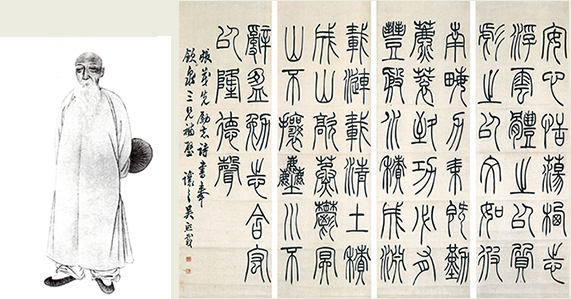 安心恬蕩棲志
浮雲體之以質
彪之以文如彼
南畝力耒既勤
藨蓘致功必有
豐殷水積成淵
載漣載清土積
成山歊蒸鬱冥
山不攘塵川不
辭盈勉志含宏
以隆德聲
張茂先勵志詩書奉
泉三兄 讓之吳熙載